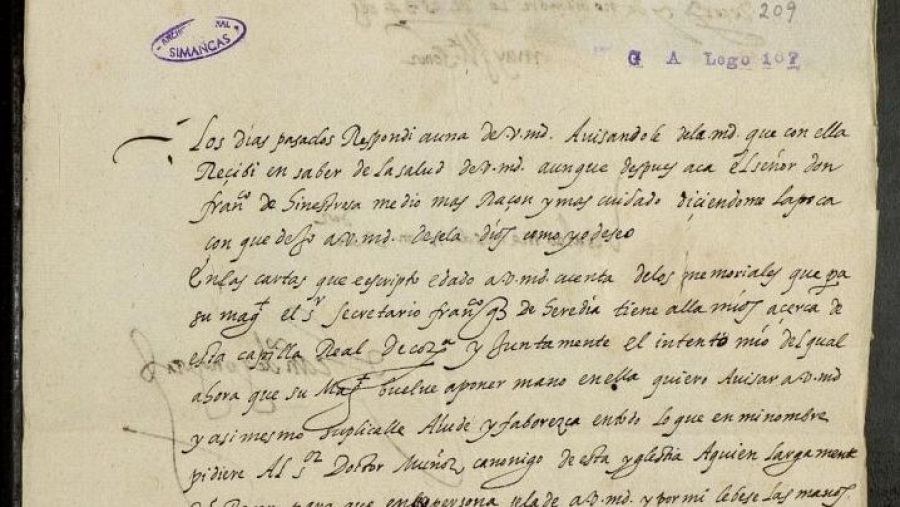 209
ARCHIVO GENERAL
SIMANCAS
G A Lego 107
Los días pasados Respondi auna de v.md. Auisandole dela md. que con ella
Recibi en saber de la salud de v.md. aunque despues aca el señor don
fran.co de hinestrosa me dio mas Raçon y mas cuidado diciendome la poca
con que dejo a v.md. desela dios como yo deseo
En las cartas que e escripto e dado a v.md cuenta delos memoriales que pa
su mag.t el s.r secretario fran.co de heredia tiene alla mios acerca de
esta capilla Real y juntamente el intento mio del qual
ahora que su Mag.t buelue aponer mano en ella quiero Auisar a v.md
y asi mesmo suplicalle Aiude y faborezca en todo lo que en mi nombre
pidiere Al s.or Doctor Muñoz canonigo de esta yglesia Aquien largamente
para que en persona a v.md. y por mi le bese las manos